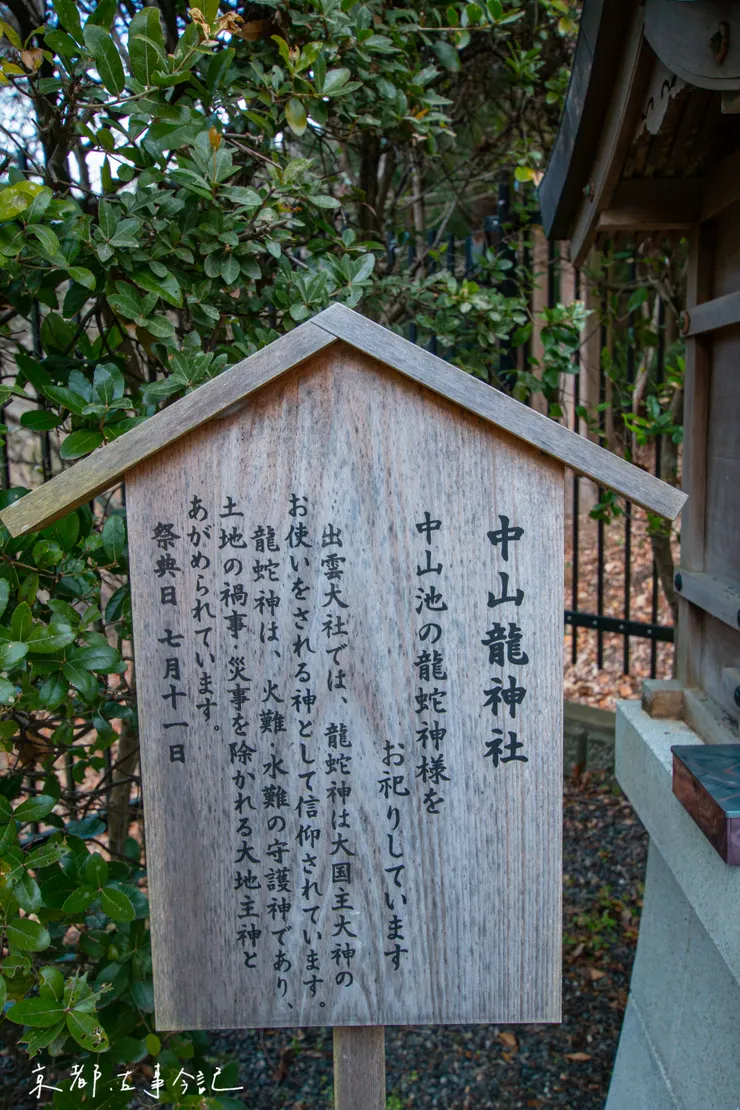 中山龍神社
中山池の龍蛇神様を
お祀りしています
出雲大社では、龍蛇神は大国主大神の
お使いをされる神として信仰されています。
龍蛇神は、火難・水難の守護神であり、
土地の禍事・災事を除かれる大地主神と
あがめられています。
祭典日 七月十一日
京都.古事今記